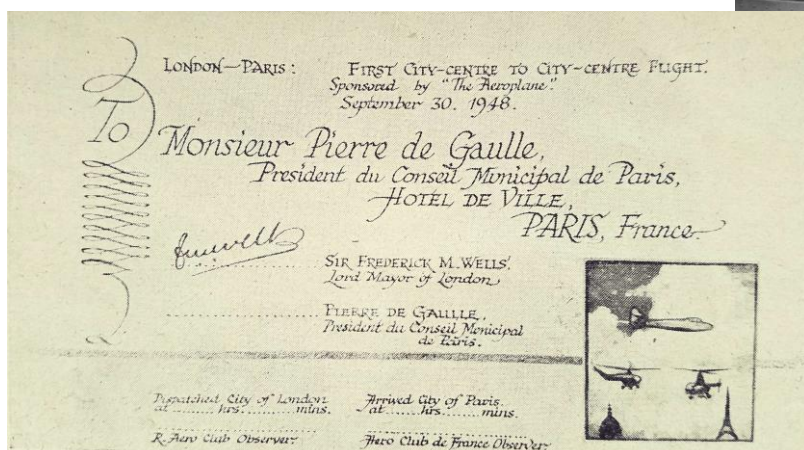 LONDON—PARIS: FIRST CITY-CENTRE TO CITY-CENTRE FLIGHT.
Sponsored by "The Aeroplane".
September 30. 1948.
To
Monsieur Pierre de Gaulle,
President du Conseil Municipal de Paris,
HOTEL DE VILLE,
PARIS, France.
SIR FREDERICK M. WELLS,
Lord Mayor of London
PIERRE DE GAULLE,
President du Conseil Municipal
de Paris.
Dispatched City of London Arrived City of Paris.
at ........ hrs. ........ mins. at ........ hrs. ........ mins.
R. Aero Club Observer. Aero Club de France Observer.